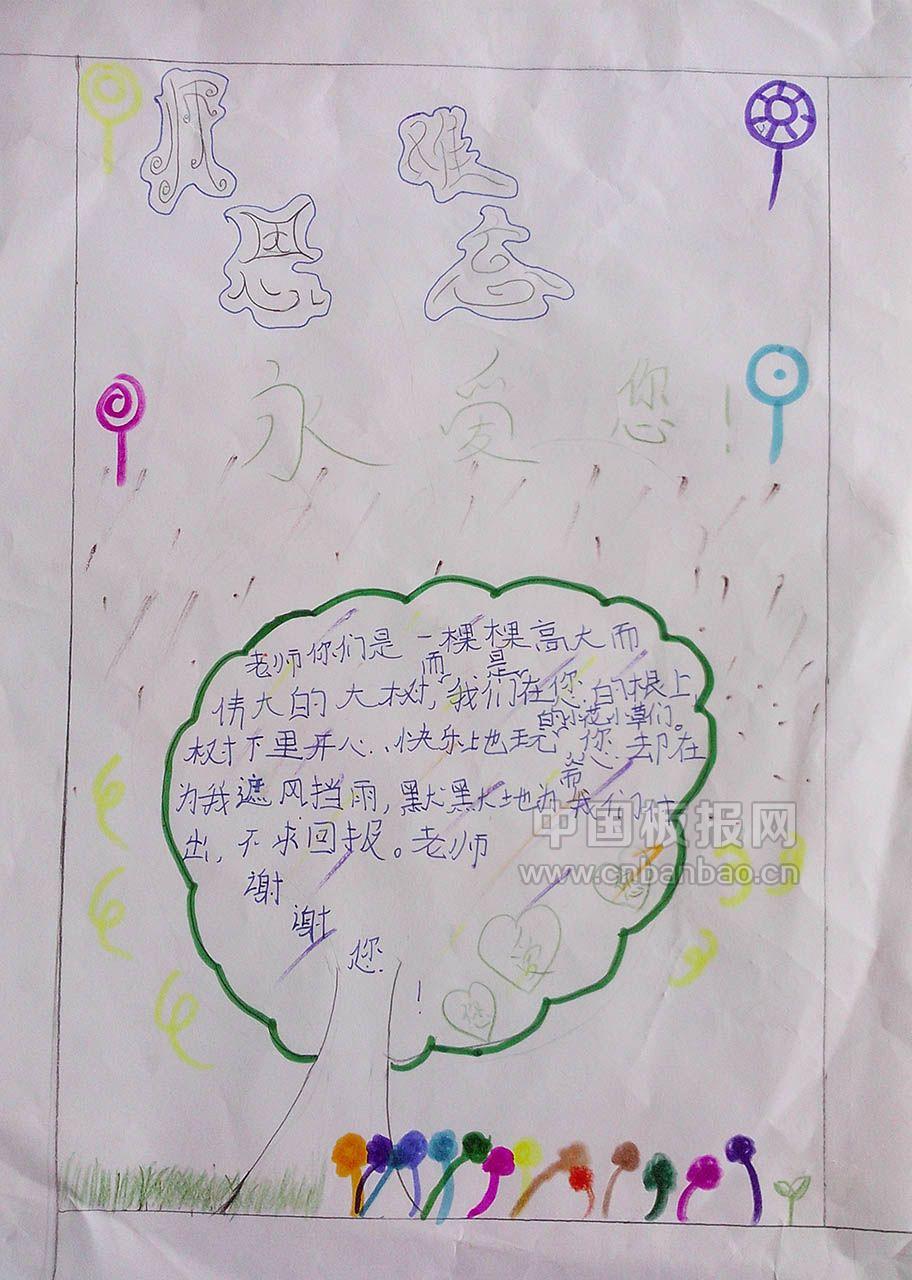 师恩难忘
永爱您！
老师你们是一棵棵高大而
而 是
伟大的大树，我们在您的根上，
的小花小草们。
树下里开心、快乐地玩，您却在
而
为我遮风挡雨，默默地为我们付
出，不求回报。老师
谢
谢
您
！
爱
您
中国板报网
www.cnbanbao.cn